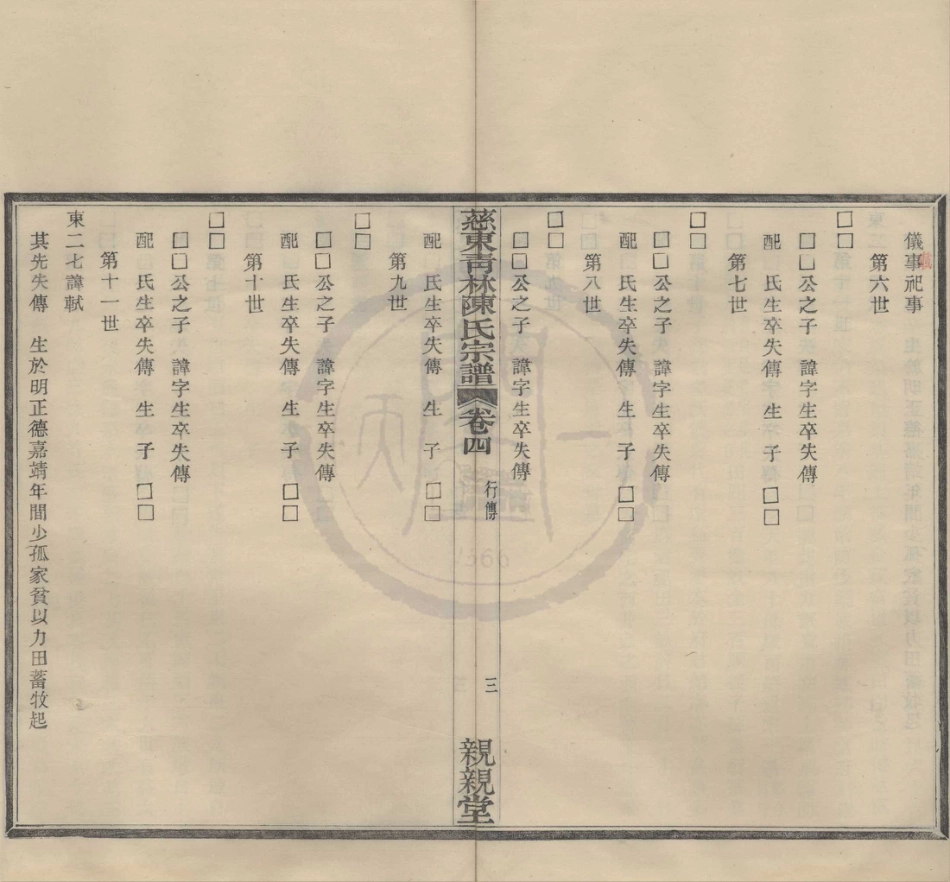 儀事祀事
第六世
□□
□□公之子　諱字生卒失傳
配　氏生卒失傳　生　子　□□
第七世
□□
□□公之子　諱字生卒失傳
配　氏生卒失傳　生　子　□□
第八世
□□
□□公之子　諱字生卒失傳
慈東青林陳氏宗譜　卷四　行傳　三　親親堂
配　氏生卒失傳　生　子　□□
第九世
□□
□□公之子　諱字生卒失傳
配　氏生卒失傳　生　子　□□
第十世
□□
□□公之子　諱字生卒失傳
配　氏生卒失傳　生　子　□□
第十一世
東二七諱軾
其先失傳　生於明正德嘉靖年間少孤家貧以力田蓄牧起